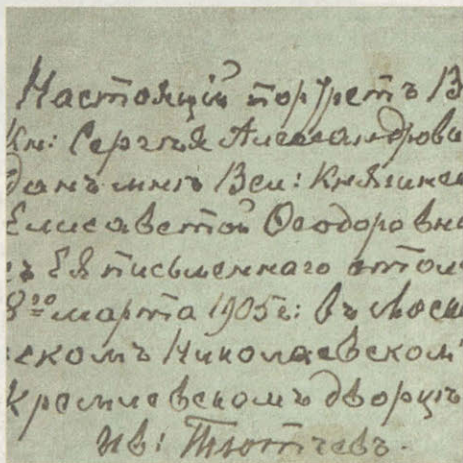 Настоящій портретъ В
Кн: Сергѣя Александрови
данъ мнѣ Вел: Княгиней
Елисаветой Ѳеодоровно
съ Ея письменнаго стол
8го марта 1905 г: въ Моско
вскомъ Николаевскомъ
Кремлевскомъ дворцѣ
Ив: Тютчевъ.